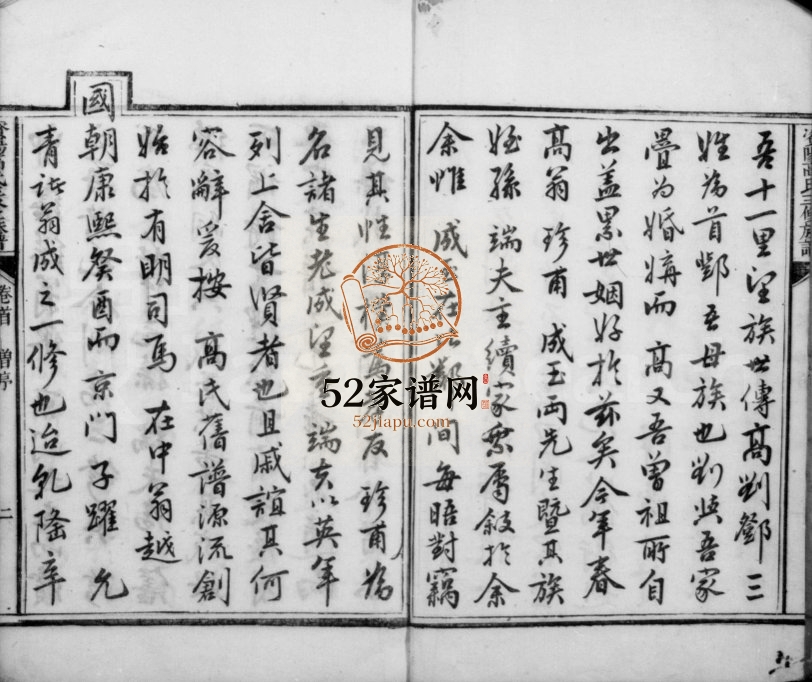 吾十一里望族世傳高劉鄧三
姓為首鄧吾母族也劉與吾家
疊為婚媾而高又吾曾祖所自
出蓋累世姻好於茲矣今年春
高翁珍甫成玉兩先生暨其族
姪孫端夫主續家乘屬敘於余
余惟成玉在間每晤對竊
見其性友珍甫為
名諸生老成望端夫以英年
列上舍皆賢者也且戚誼其何
容辭爰按高氏舊譜源流創
始於有明司馬在中翁越
國
朝康熙癸酉而京門子躍允
青諸翁成之一修也迨乾隆辛
卷首
二
52家谱网
52jiapu.com